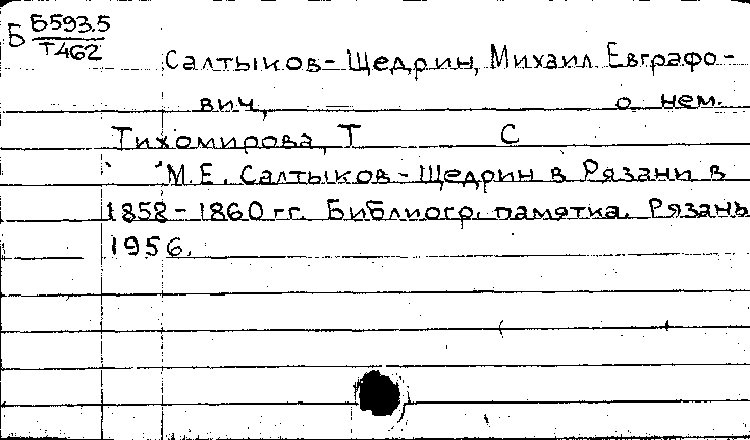 Б Б593.5
Т462
Салтыков-Щедрин, Михаил Евграфо-
вич, о нем.
Тихомирова, Т С
М.Е. Салтыков-Щедрин в Рязани в
1858-1860 гг. Библиогр. памятка. Рязань
1956.